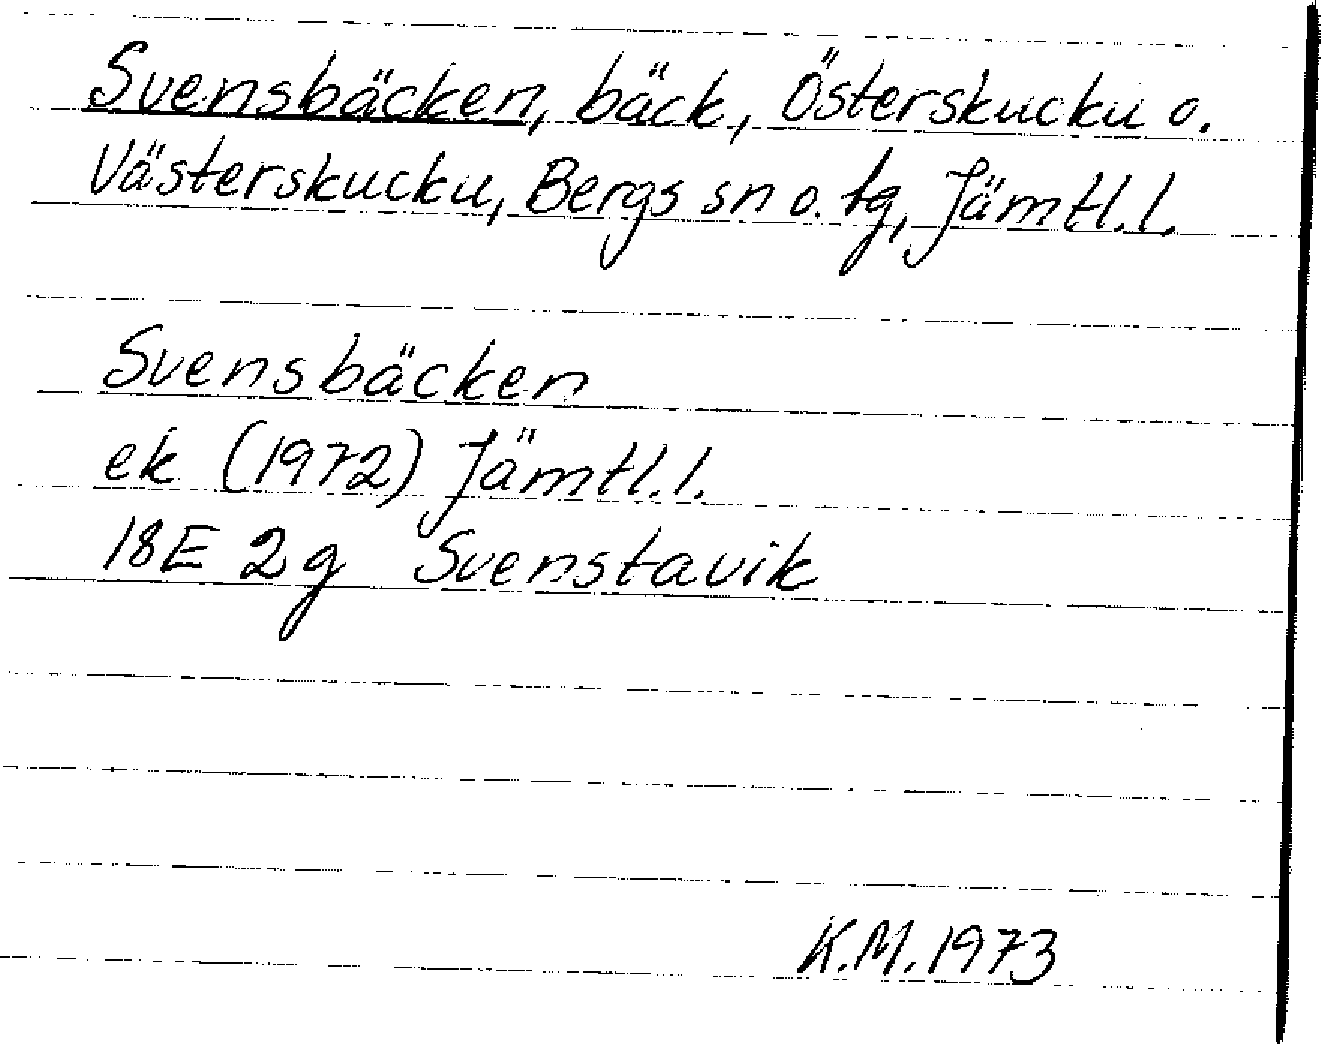 Svensbäcken, bäck, Österskucku o.
Västerskucku, Bergs sn o. tg, Jämtl.l.
Svensbäcken
ek (1972) Jämtl.l.
18E 2g Svenstavik
K.M.1973